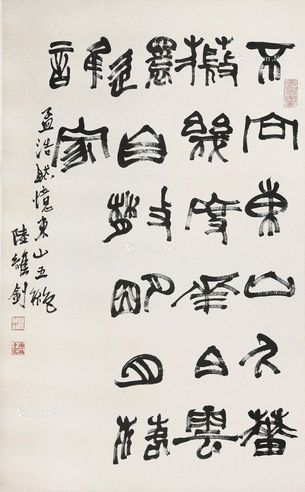 不向東山久薔
薇幾度花白雲
還自散明月落
誰家
孟浩然憶東山五絕
陸維釗